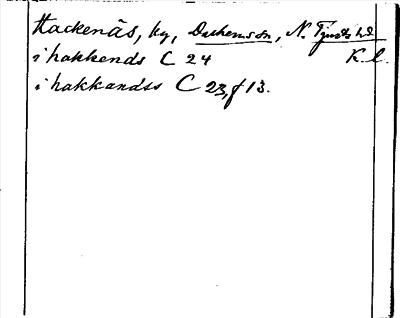 Hackenäs, by, Dalhemssn, N. Tjusts hd
i hakkends C 24 K. l.
i hakkandss C 23, f 13.